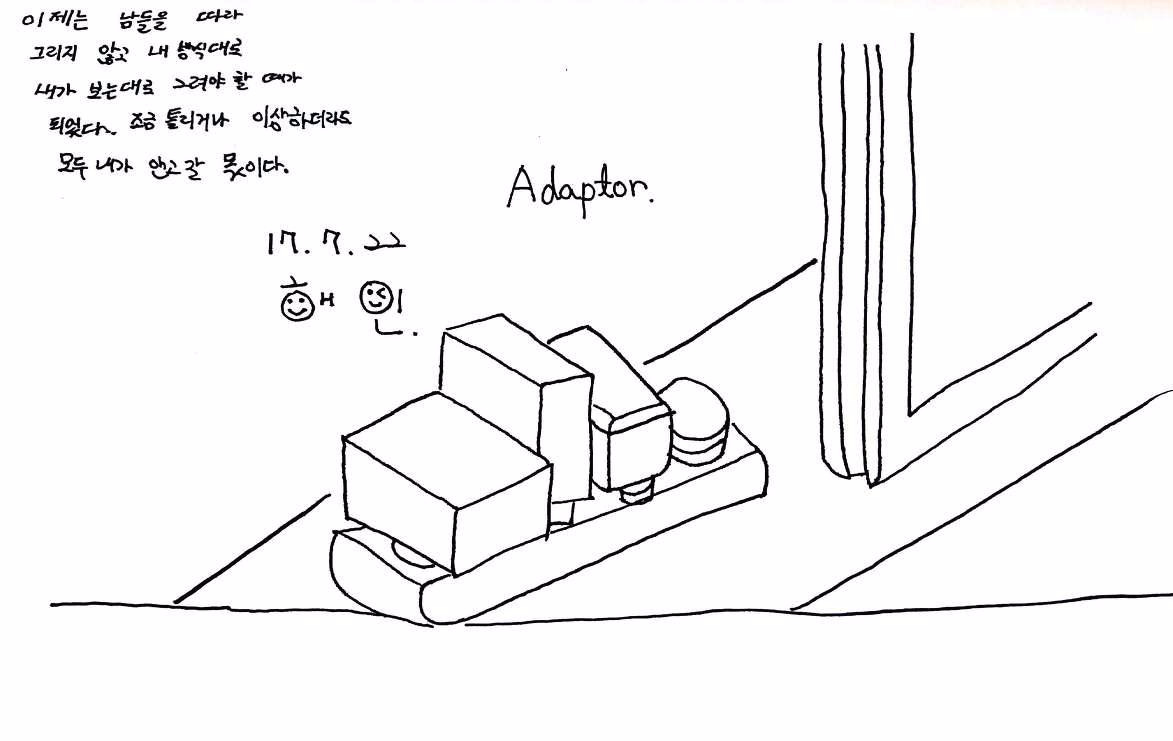 이제는 남들을 따라
그리지 않고 내 방식대로
내가 보는대로 그려야 할 때가
되었다. 조금 틀리거나 이상하더라도
모두 내가 안고 갈 몫이다.
Adaptor.
17. 7. 22
해 인.